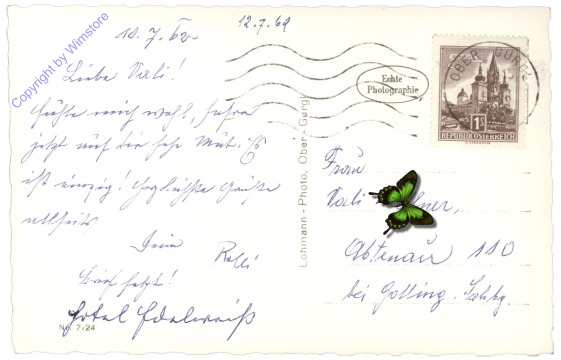 Copyright by Wimstore
10.7.62
12.7.62
Liebe Vali!
fühle mich wohl, fahre
jetzt auf die hohe Mut. Es
ist einzig! Herzlichste Grüße
allseits
Dein Rolli
Brief folgt!
Hotel Edelweiß
No. 7/24
Lohmann - Photo, Ober - Gurgl
Echte
Photographie
OBER GURGL
1S
REPUBLIK ÖSTERREICH
Frau
Vali
Abtenau 110
bei Golling. Salzbg.